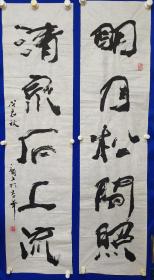 明月松間照
清泉石上流
戊戌秋